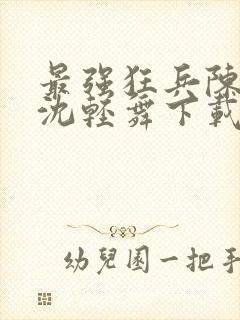 最强狂兵陳
沈輕舞下載
幼兒園一把手